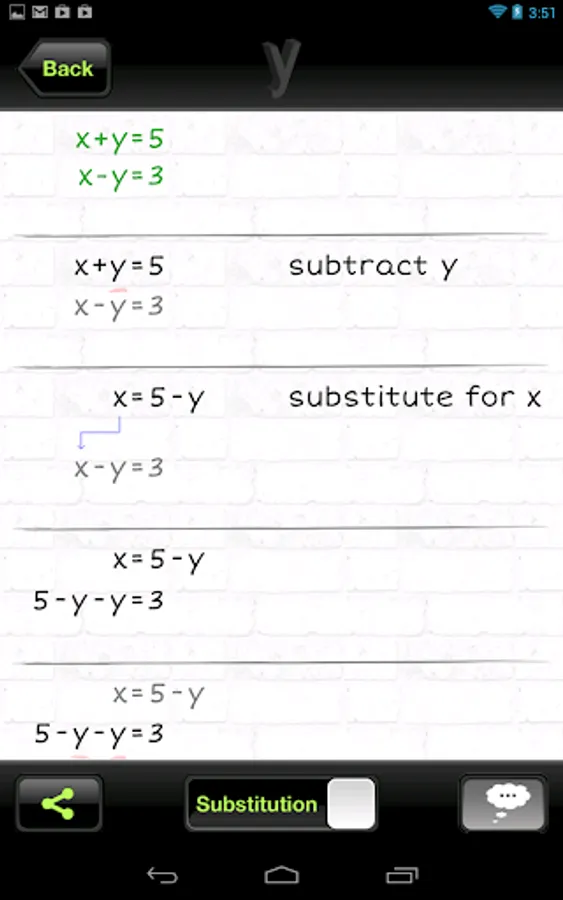 3:51
Back
y
x+y=5
x-y=3
x+y=5 subtract y
x-y=3
x=5-y substitute for x
x-y=3
x=5-y
5-y-y=3
x=5-y
5-y-y=3
Substitution